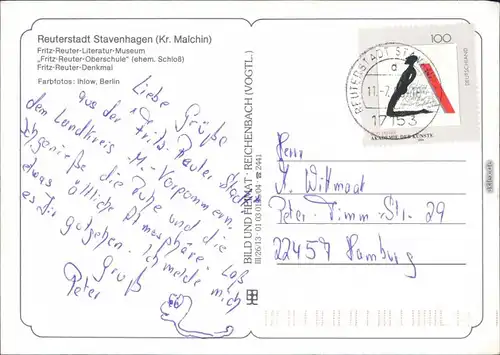 Reuterstadt Stavenhagen (Kr. Malchin)
Fritz-Reuter-Literatur-Museum
„Fritz-Reuter-Oberschule" (ehem. Schloß)
Fritz-Reuter-Denkmal
Farbfotos: Ihlow, Berlin
Liebe Grüße
aus der Fritz Reuter Stadt
dem Landkreis M.-Vorpommern.
Ich genieße die Ruhe und die
etwas östliche Atmosphäre. Laß
es Dir gutgehen. Ich melde mich
Gruß
Peter
BILD UND HEIMAT · REICHENBACH (VOGTL.)
III/26/13 · 01 03 01 04 · ☎ 2441
100
DEUTSCHLAND
AKADEMIE DER KÜNSTE
REUTERSTADT STAVENHAGEN
17153
Herrn
Wittmaat
Peter-Timm-Str. 29
22457 Hamburg